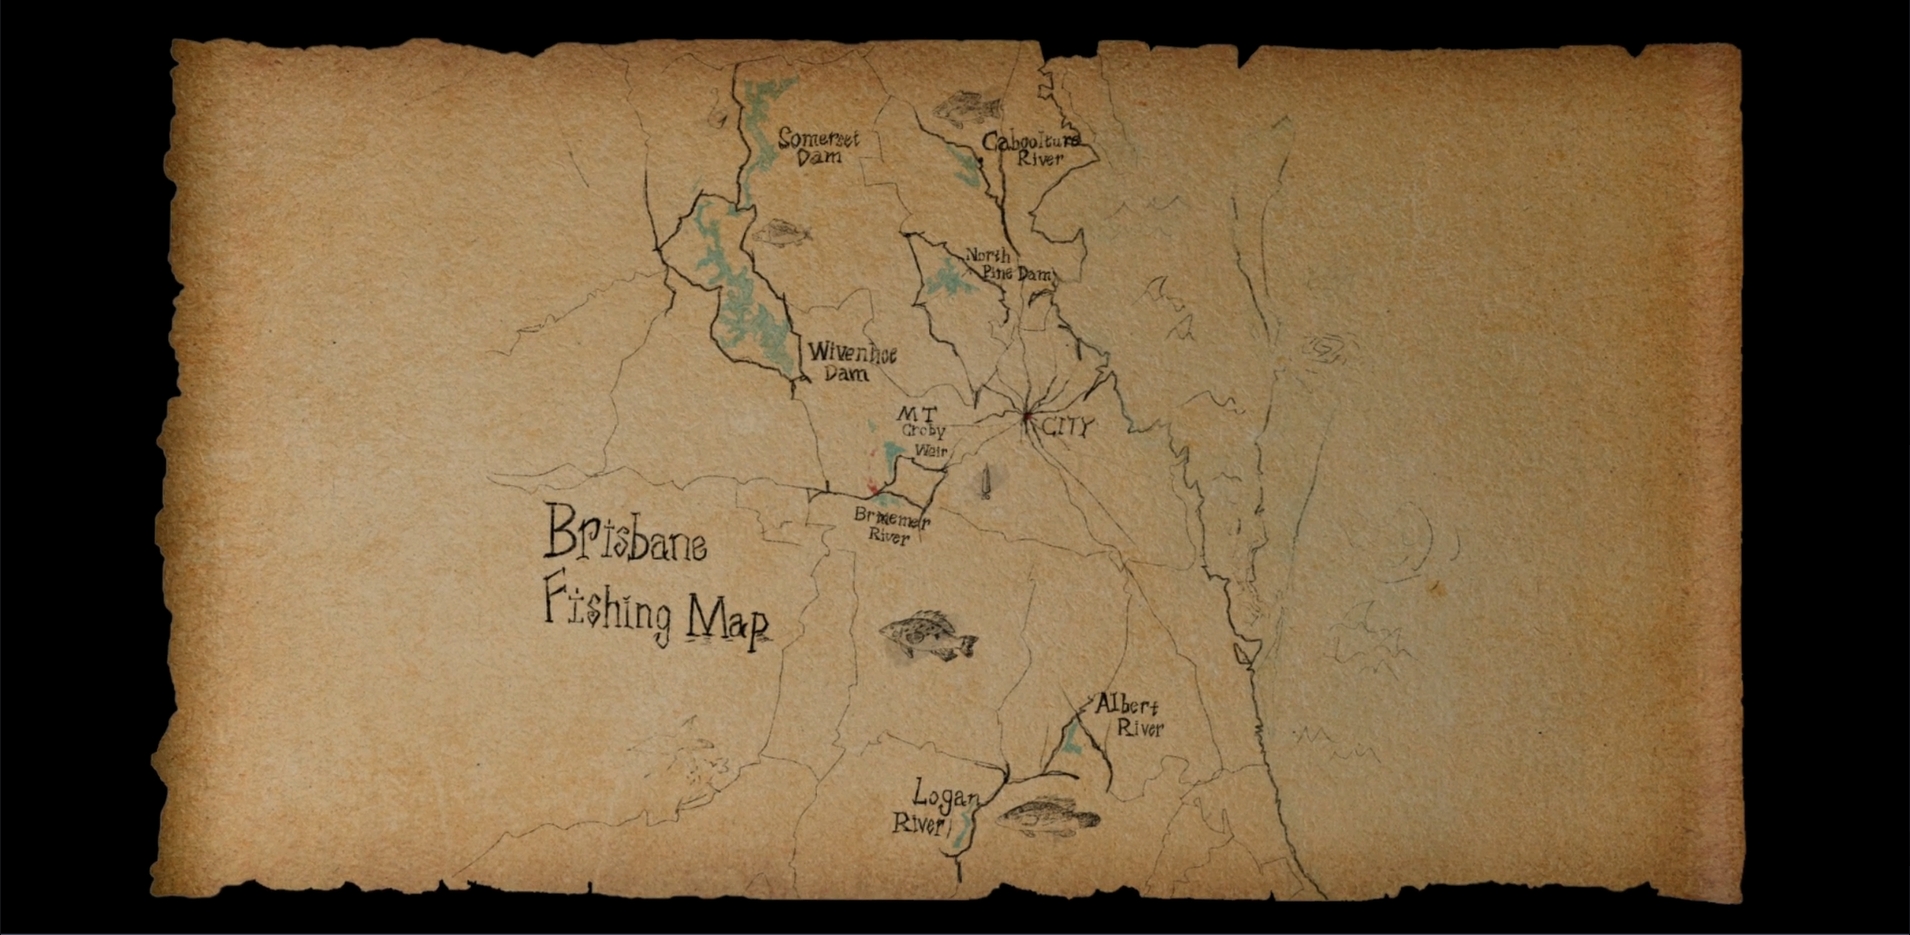 Somerset
Dam
Caboolture
River
North
Pine Dam
Wivenhoe
Dam
MT
Croby
Weir
CITY
River
Brisbane
Fishing Map
Albert
River
Logan
River